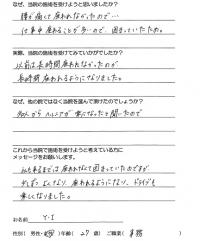 なぜ、当院の施術を受けようと思いましたか？
腰が痛くて座れなかったので…
仕事中座ることが多いので、困っていたため。
実際、当院の施術を受けてみていかがでしたか？
以前は長時間座れなかったのが
長時間座れるようになりました。
なぜ、他の院ではなく当院を選んで頂けたのでしょうか？
知人からヘルニアが楽になったと聞いたので
これから当院で施術を受けようと考えている方に
メッセージをお願いします。
私も来るまでは座れなくて困っていたのですが
少しずつよくなり、座れるようになり、ドライブも
楽しくなりました。
お名前 Y・I
性別( 男性・女性 ) 年齢( 27 歳) ご職業( 事務 )